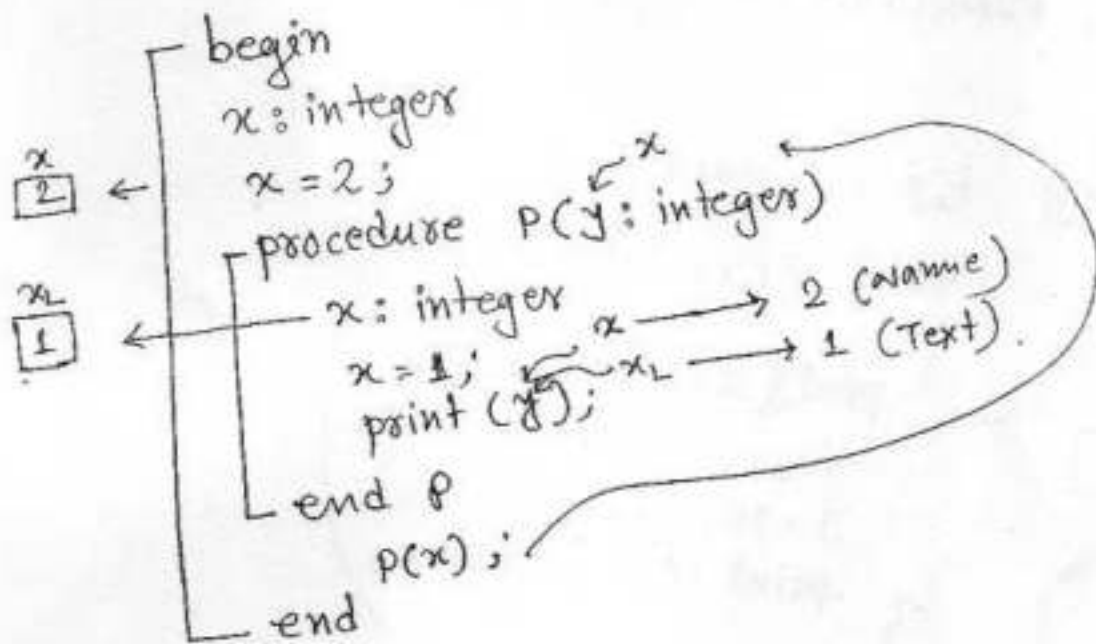 begin
x : integer
x
2
x = 2 ;
x
procedure P(y : integer)
x_L
1
x : integer
x
2
x = 1 ;
x_L
1 (Text).
print (y) ;
end P
P(x) ;
end